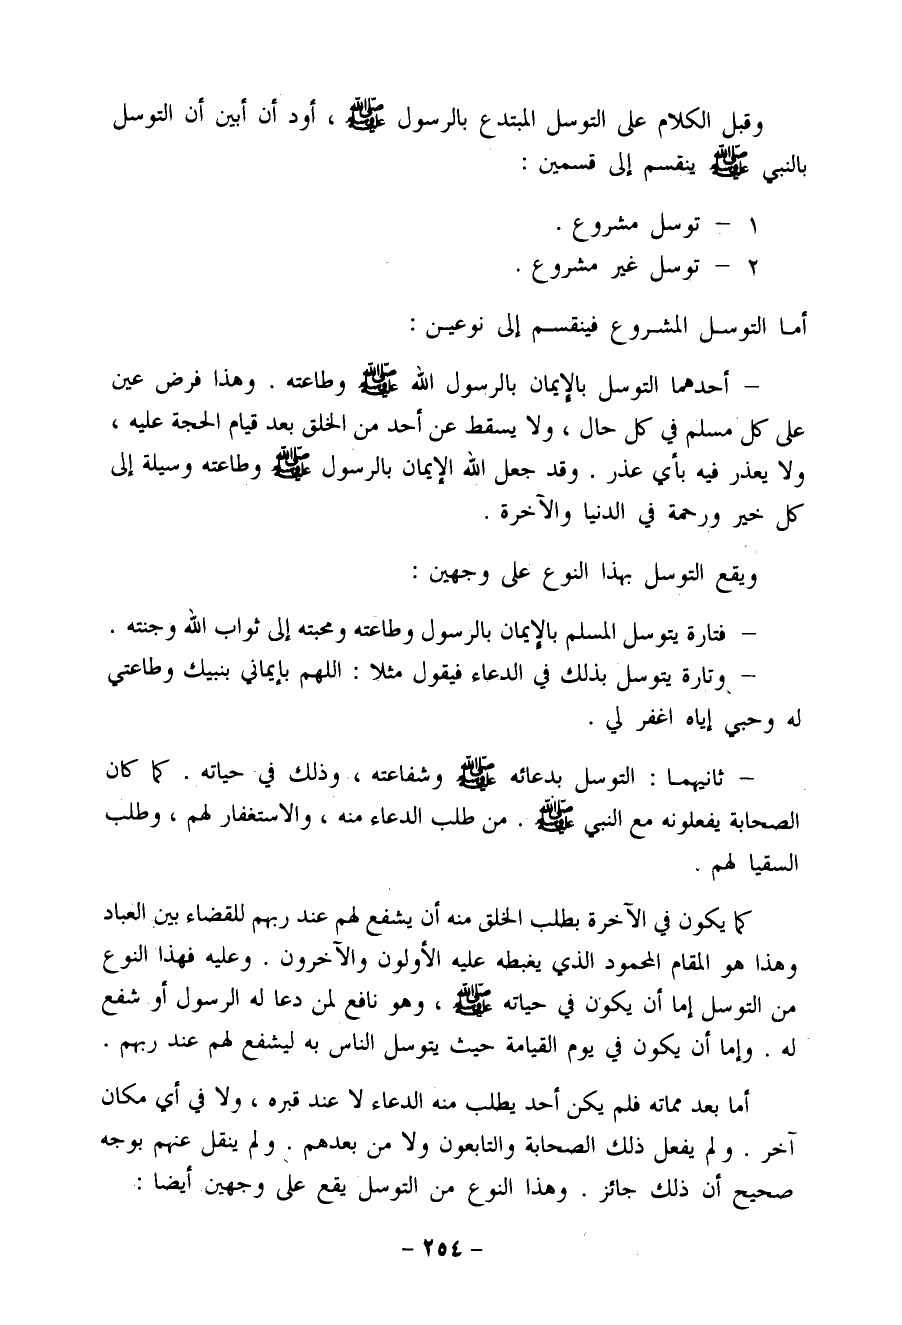 وقبل الكلام على التوسل المبتدع بالرسول ﷺ ، أود أن أبين أن التوسل
بالنبي ﷺ ينقسم إلى قسمين :
١ – توسل مشروع .
٢ – توسل غير مشروع .
أما التوسل المشروع فينقسم إلى نوعين :
– أحدهما التوسل بالإيمان بالرسول الله ﷺ وطاعته . وهذا فرض عين
على كل مسلم في كل حال ، ولا يسقط عن أحد من الخلق بعد قيام الحجة عليه ،
ولا يعذر فيه بأي عذر . وقد جعل الله الإيمان بالرسول ﷺ وطاعته وسيلة إلى
كل خير ورحمة في الدنيا والآخرة .
ويقع التوسل بهذا النوع على وجهين :
– فتارة يتوسل المسلم بالإيمان بالرسول وطاعته ومحبته إلى ثواب الله وجنته .
– وتارة يتوسل بذلك في الدعاء فيقول مثلا : اللهم بإيماني بنبيك وطاعتي
له وحبي إياه اغفر لي .
– ثانيهما : التوسل بدعائه ﷺ وشفاعته ، وذلك في حياته . كما كان
الصحابة يفعلونه مع النبي ﷺ . من طلب الدعاء منه ، والاستغفار لهم ، وطلب
السقيا لهم .
كما يكون في الآخرة بطلب الخلق منه أن يشفع لهم عند ربهم للقضاء بين العباد
وهذا هو المقام المحمود الذي يغبطه عليه الأولون والآخرون . وعليه فهذا النوع
من التوسل إما أن يكون في حياته ﷺ ، وهو نافع لمن دعا له الرسول أو شفع
له . وإما أن يكون في يوم القيامة حيث يتوسل الناس به ليشفع لهم عند ربهم .
أما بعد مماته فلم يكن أحد يطلب منه الدعاء لا عند قبره ، ولا في أي مكان
آخر . ولم يفعل ذلك الصحابة والتابعون ولا من بعدهم . ولم ينقل عنهم بوجه
صحيح أن ذلك جائز . وهذا النوع من التوسل يقع على وجهين أيضا :
– ٢٥٤ –